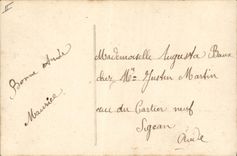 II
Bonne Année
Maurice
Mademoiselle Augusta Baux
chez Mr Justin Martin
rue du Cartier neuf
Sigean
Aude